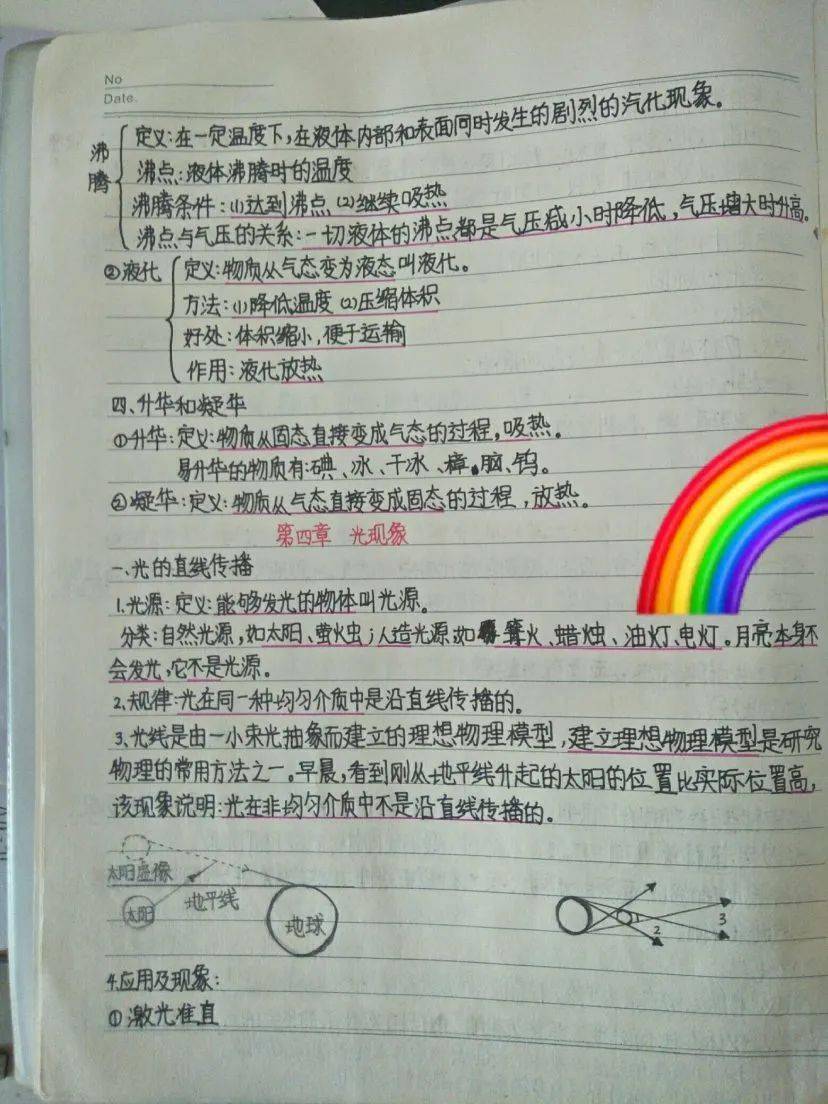 No
Date.
定义:在一定温度下,在液体内部和表面同时发生的剧烈的汽化现象。
沸腾
沸点:液体沸腾时的温度
沸腾条件:⑴达到沸点 ⑵继续吸热
沸点与气压的关系:一切液体的沸点都是气压减小时降低,气压增大时升高。
②液化
定义:物质从气态变为液态叫液化。
方法:⑴降低温度 ⑵压缩体积
好处:体积缩小,便于运输
作用:液化放热
四、升华和凝华
①升华:定义:物质从固态直接变成气态的过程,吸热。
易升华的物质有:碘、冰、干冰、樟脑、钨。
②凝华:定义:物质从气态直接变成固态的过程,放热。
第四章 光现象
一、光的直线传播
1.光源:定义:能够发光的物体叫光源。
分类:自然光源,如太阳、萤火虫;人造光源,如篝火、蜡烛、油灯、电灯。月亮本身不
会发光,它不是光源。
2.规律:光在同一种均匀介质中是沿直线传播的。
3.光线是由一小束光抽象而建立的理想物理模型,建立理想物理模型是研究
物理的常用方法之一。早晨,看到刚从地平线升起的太阳的位置比实际位置高,
该现象说明:光在非均匀介质中不是沿直线传播的。
太阳虚像
太阳
地平线
地球
1
2
3
4.应用及现象:
①激光准直